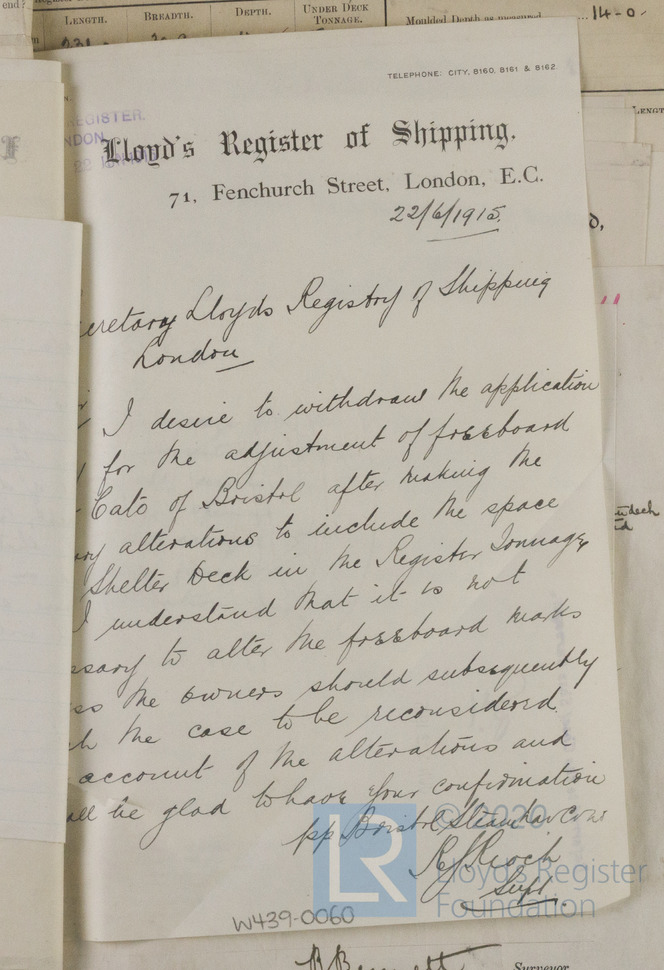 LENGTH. BREADTH. DEPTH. UNDER DECK TONNAGE. Moulded Depth as measured 14-0
TELEPHONE: CITY, 8160, 8161 & 8162.
REGISTER.
Lloyd's Register of Shipping.
71, Fenchurch Street, London, E.C.
22/6/1915
cretary Lloyds Registry of Shipping
London
I desire to withdraw the application
for the adjustment of freeboard
Cato of Bristol after making the
ary alterations to include the space
Shelter Deck in the Register Tonnage
I understand that it is not
ssary to alter the freeboard marks
ss the owners should subsequently
h the case to be reconsidered.
account of the alterations and
all be glad to have your confirmation
pp Bristol Steam Nav Co
Supt.
W439-0060
LR
© 2020
Lloyd's Register
Foundation
Surveyor